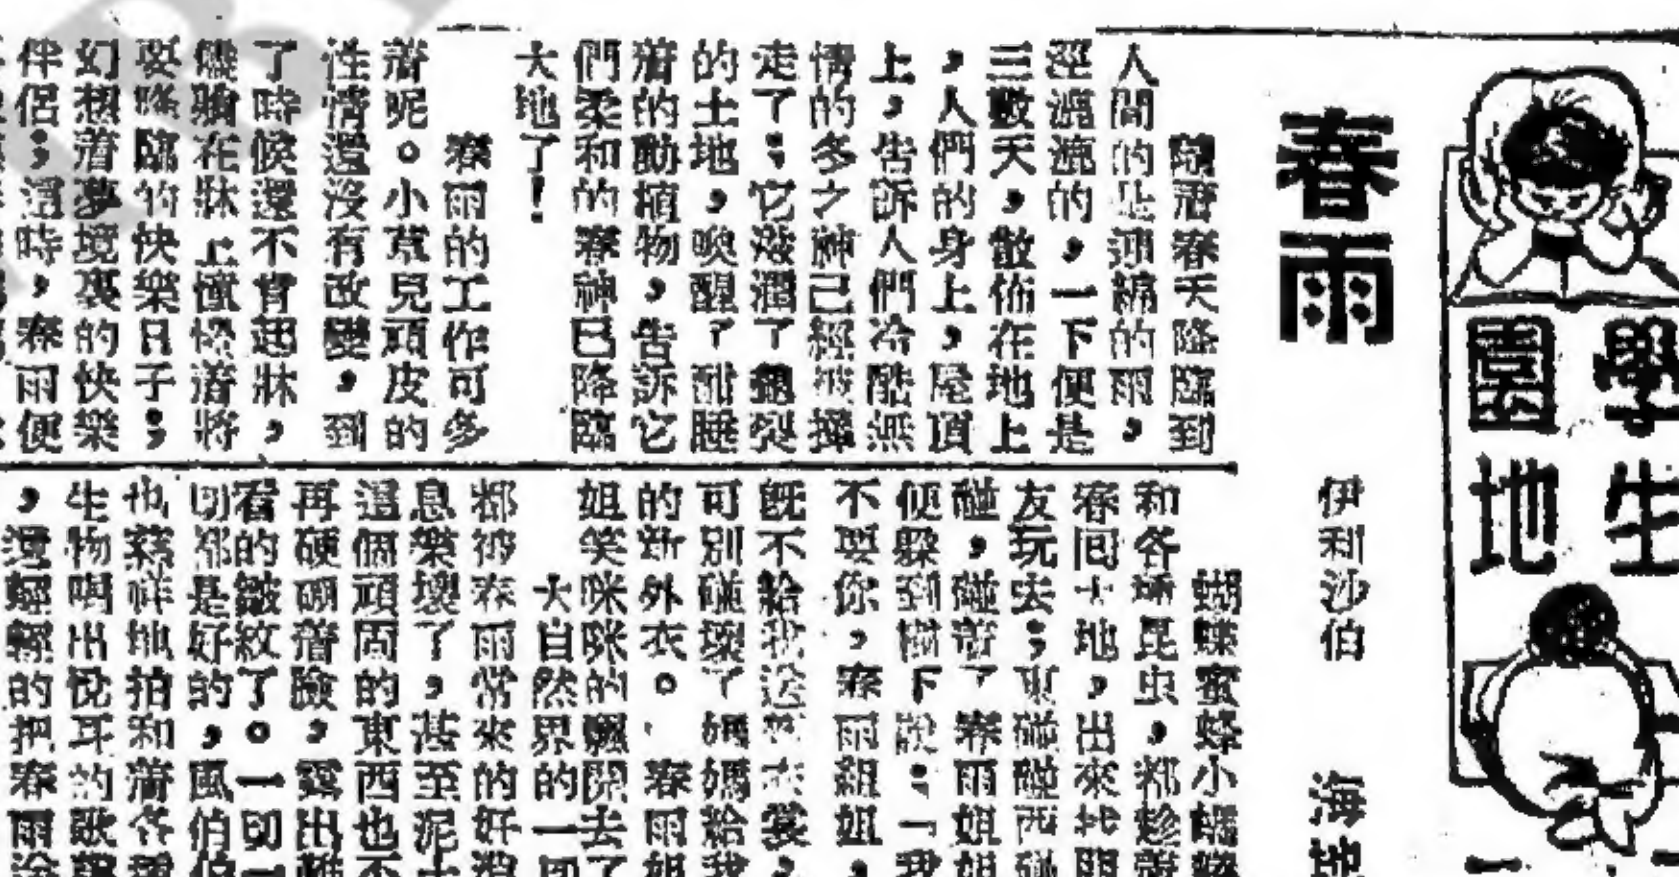 學生
園地
春雨
伊利沙伯
海地
隨着春天降臨到
人間的是連綿的雨，
溼漉漉的，一下便是
三數天，散佈在地上
，人們的身上，屋頂
上，告訴人們冷酷無
情的冬之神已經被攆
走了；它滋潤了龜裂
的土地，喚醒了酣睡
着的動植物，告訴它
們柔和的春神已降臨
大地了！
春雨的工作可多
着呢。小草兒頑皮的
性情還沒有改變，到
了時候還不肯起牀，
懶躺在牀上憧憬着將
要降臨的快樂日子；
幻想着夢境裏的快樂
伴侶；這時，春雨便
蝴蝶蜜蜂小
和各種昆虫，都趁
春回大地，出來找
友玩去；東碰碰西碰
碰，碰着了春雨姐姐
便躱到樹下說：「我
不要你，春雨姐姐，
旣不給我送
衣裳，
可別碰壞了媽媽給我
的新外衣。春雨姐
姐笑咪咪的飄開去了
大自然界的一切
都被春雨帶來的好
息樂壞了，甚至泥土
這個頑固的東西也不
再硬硼着臉，露出難
看的皺紋了。一切一
切都是好的，風伯伯
也慈祥地拍和着各種
生物唱出悅耳的歌
，還輕輕的把春雨